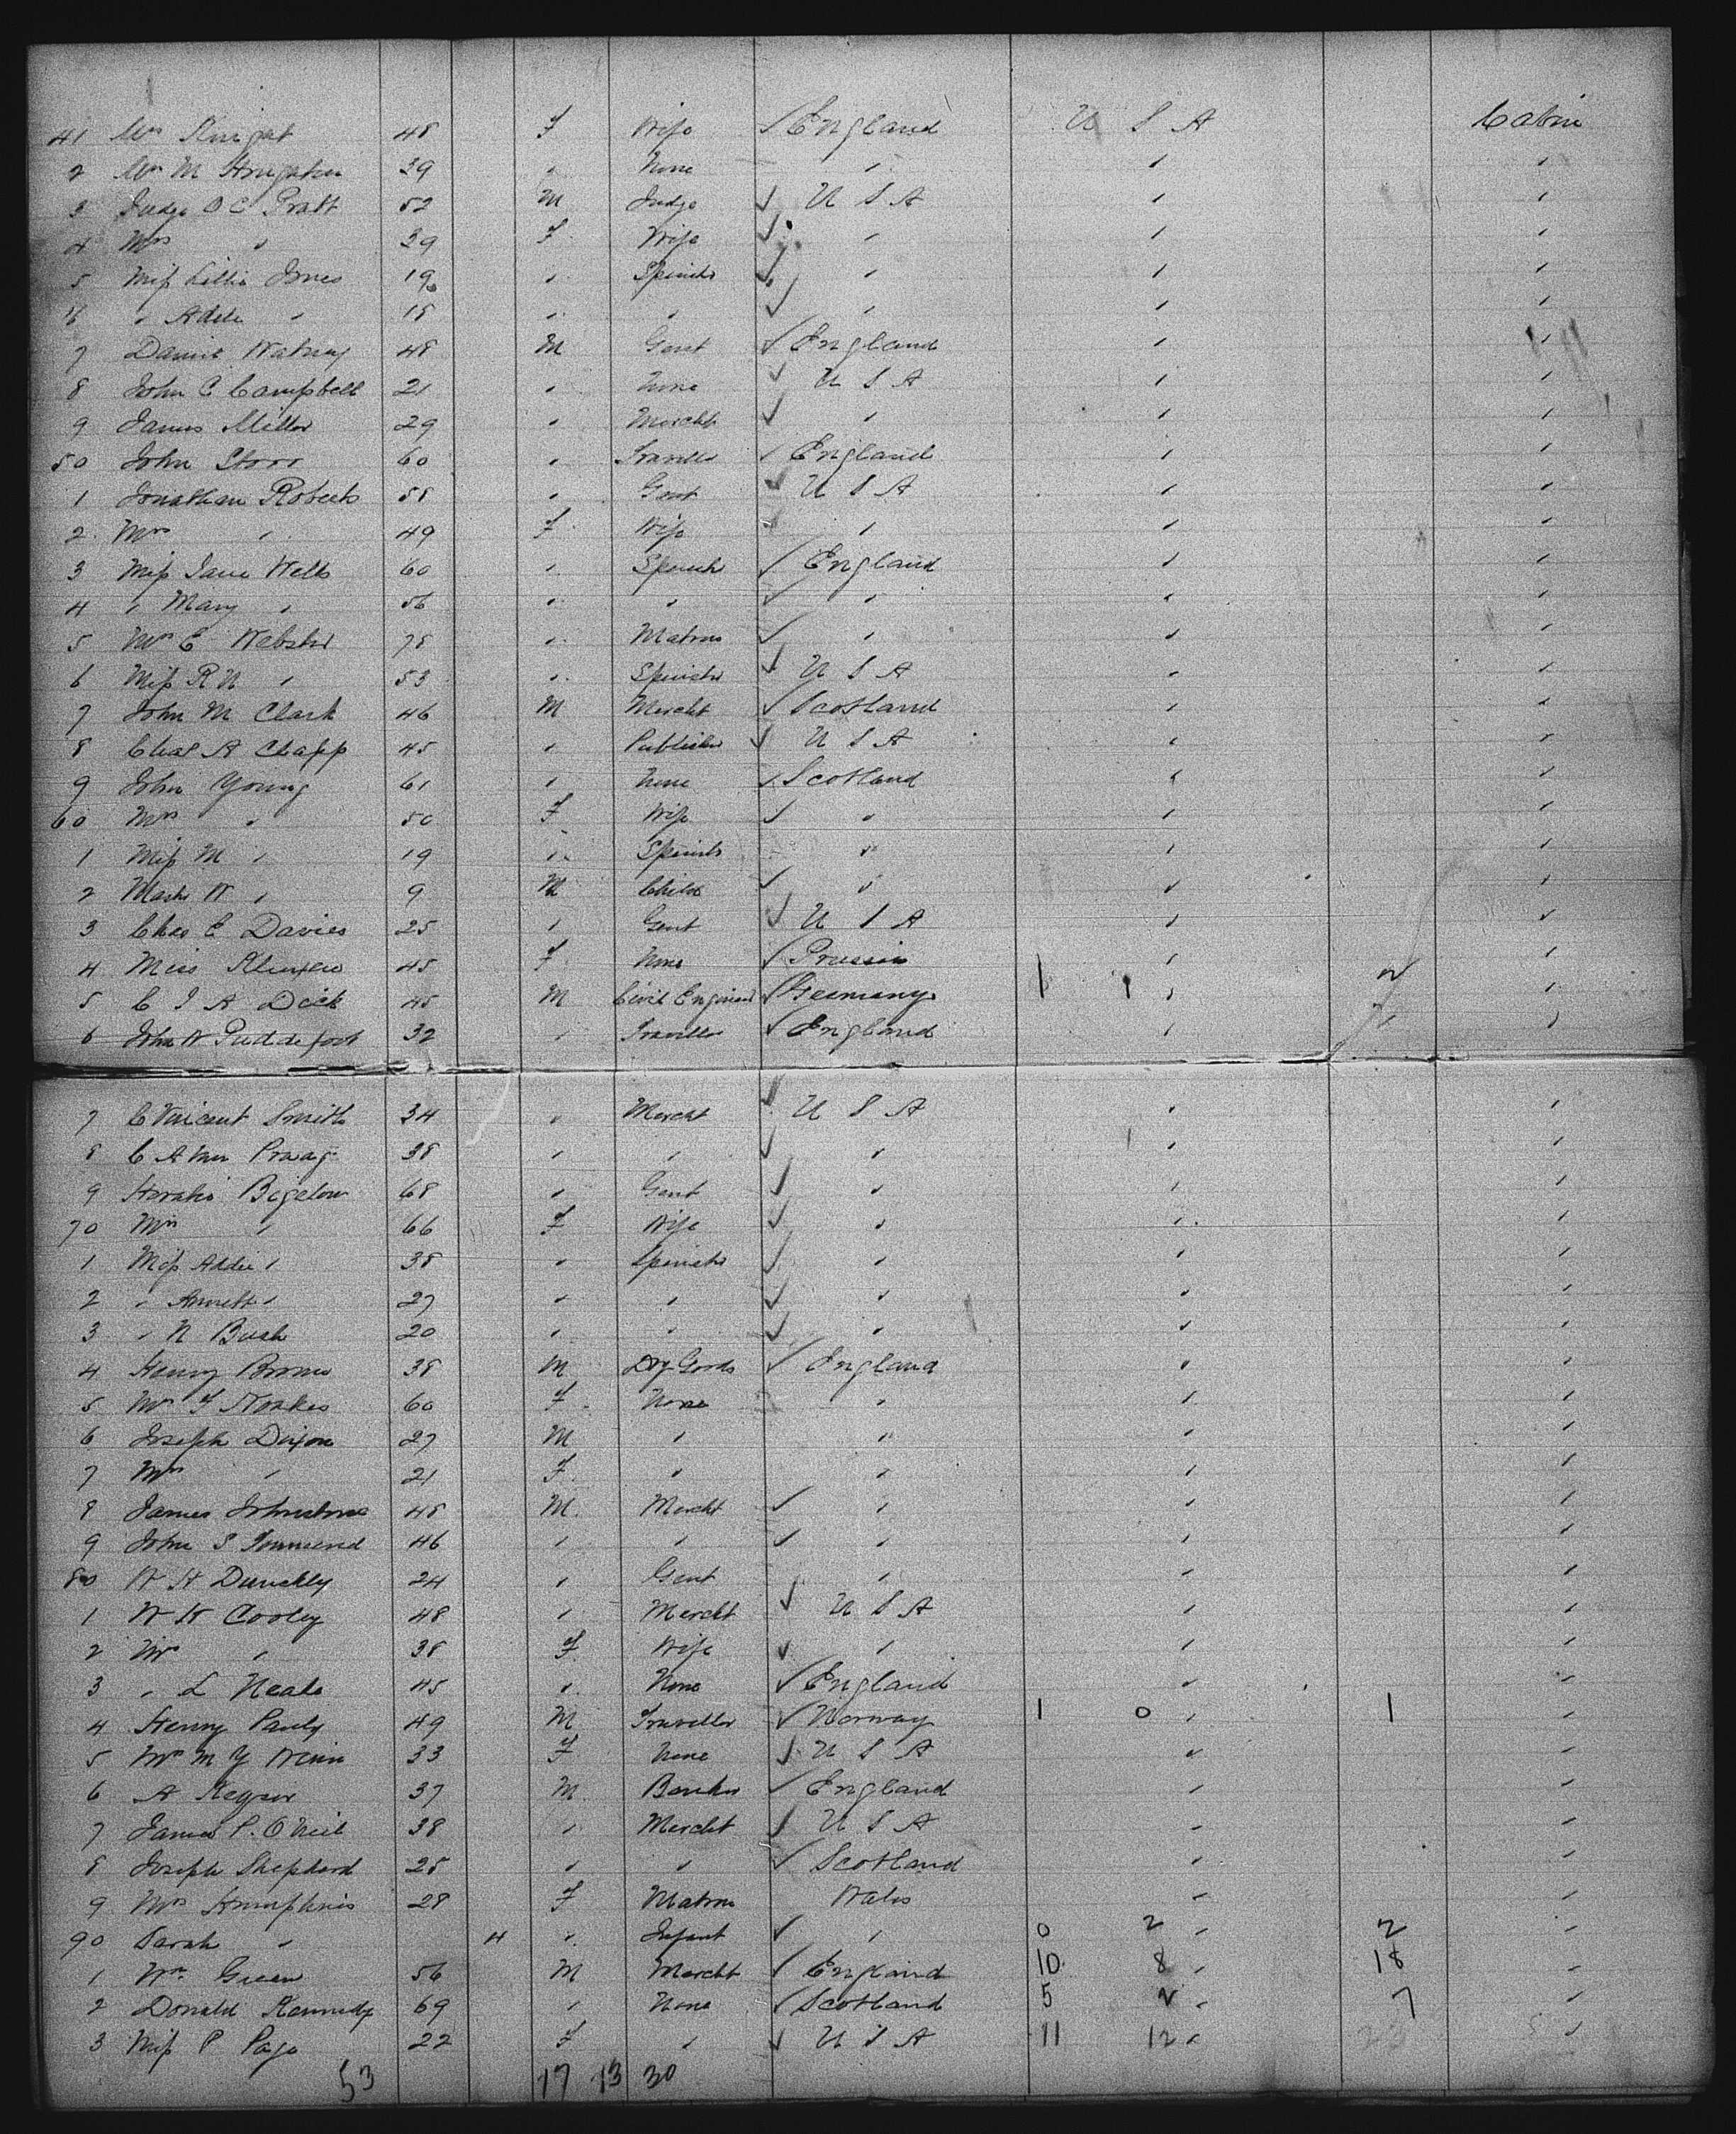 41 Mrs Knight 48 F Wife ✓ England U S A Cabin
2 Mrs M 39 " None " " "
3 Judge O C Pratt 52 M Judge ✓ U S A " "
4 Mrs " 39 F Wife ✓ " " "
5 Miss Lillie Jones 19 " Spinster ✓ " " "
6 " Adele " 15 " " ✓ " " "
7 Daniel Watney 48 M Gent ✓ England " "
8 John C Campbell 21 " None ✓ U S A " "
9 James Miller 29 " Mercht ✓ " " "
50 John Storr 60 " Traveller ✓ England " "
1 Jonathan Roberts 58 " Gent ✓ U S A " "
2 Mrs " 49 F Wife ✓ " " "
3 Miss Jane Wells 60 " Spinster ✓ England " "
4 " Mary " 56 " " ✓ " " "
5 Mrs E Webster 78 " Matron ✓ " " "
6 Miss R N " 53 " Spinster ✓ U S A " "
7 John M Clark 46 M Mercht ✓ Scotland " "
8 Chas A Clapp 45 " Publisher ✓ U S A " "
9 John Young 61 " None ✓ Scotland " "
60 Mrs " 50 F Wife ✓ " " "
1 Miss M " 19 " Spinster " " "
2 Mastr W " 9 M Child ✓ " " "
3 Chas E Davies 25 " Gent ✓ U S A " "
4 Miss 45 F None ✓ Prussia " "
5 C J A Dick 45 M Civil Engineer ✓ Germany 1 1 " 2 "
6 John W Puddefoot 32 " Traveller ✓ England " " "
7 C Vincent Smith 34 " Mercht ✓ U S A " "
8 C A Van Praag 38 " " ✓ " " "
9 Horatio Bigelow 68 " Gent ✓ " " "
70 Mrs " 66 F Wife ✓ " " "
1 Miss Addie " 38 " Spinster ✓ " " "
2 " Annette " 27 " " ✓ " " "
3 " N Bush 20 " " ✓ " " "
4 Henry Brown 38 M Dry Goods ✓ England " "
5 Mrs F Noakes 60 F None " " "
6 Joseph Dixon 27 M " " " "
7 Mrs " 21 F " " " "
8 James Johnstone 48 M Mercht ✓ " " "
9 John S Townsend 46 " " ✓ " " "
80 W H Dunckly 24 " Gent " " "
1 W H Cooley 48 " Mercht ✓ U S A " "
2 Mrs " 38 F Wife ✓ " " "
3 " L Neale 45 " None ✓ England " "
4 Henry Pauly 49 M Traveller ✓ Norway 1 0 " 1 "
5 Mrs M Y Winn 33 F None ✓ U S A " "
6 A Keyser 37 M Banker ✓ England " "
7 James P. O'Neil 38 " Mercht ✓ U S A " "
8 Joseph Shepherd 25 " " ✓ Scotland " "
9 Mrs Humphries 28 F Matron Wales " "
90 Sarah " 4 " Infant ✓ " 0 2 " 2 "
1 Wm Green 56 M Mercht ✓ England 10 8 " 18 "
2 Donald Kennedy 69 " None ✓ Scotland 5 2 " 7 "
3 Miss P Page 22 F " ✓ U S A 11 12 " 23 "
53 17 13 30